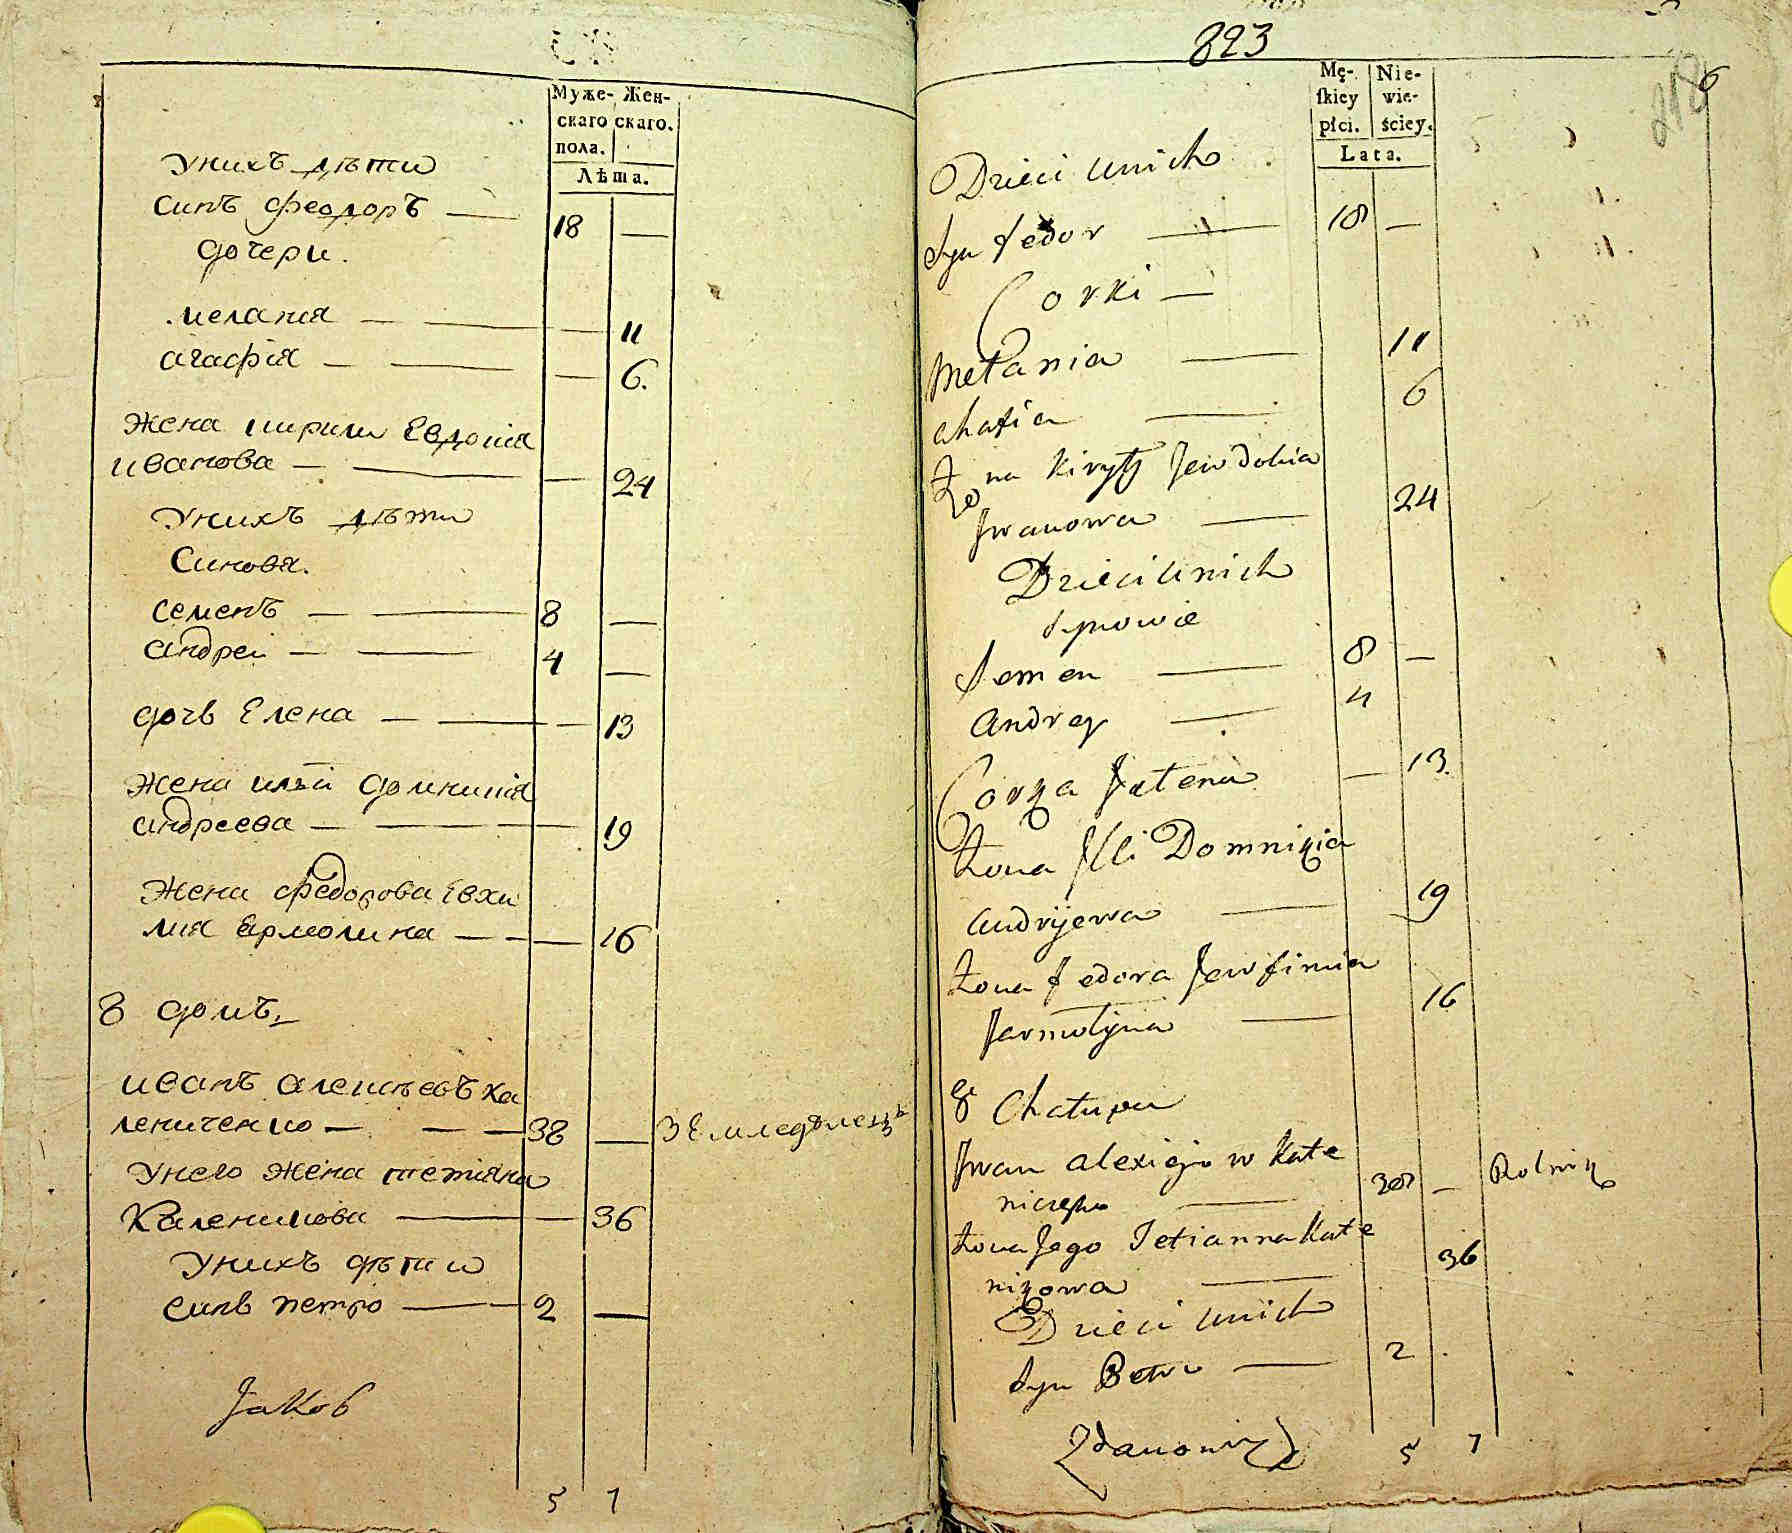 Муже- Жен-
скаго скаго.
пола.
Лѣта.
Унихъ дѣти
Синъ Феодоръ — 18 —
дочери.
Меланія — — — 11
Агафія — — — 6.
Жена кирили Евдокія
Иванова — — — 24
Унихъ дѣти
Синовя.
Семенъ — — 8 —
Андреи — — 4 —
дочь Елена — — — 13
Жена илѣи Домникія
Андреева — — — 19
Жена Федорова Евхи
мия Ермолина — — — 16
8 домъ
Иванъ Алексѣевъ ка
лениченко — — — 38 — Земледѣлецъ
Унего жена тетяна
Каленикова — — 36
Унихъ дѣти
Синъ Петро — — 2 —
Jakob
5 7
823
6
Mę- Nie-
skiey wie-
płci. ściey.
Lata.
Dzieci unich
Syn Fedor — 18 —
Corki —
Mełania — 11
Ahafia — 6
Żona Kiryły Jewdokia
Iwanowa — 24
Dzieci unich
Synowie
Semen — 8 —
Andrey — 4
Corka Jełena — 13.
Żona Illi Domnikia
Andrijewa — 19
Żona Fedora Jewfimia
Jarmołyna — 16
8 Chałupa
Iwan Alexiejow Kałe
niczenko — 38 — Rolnik
Żona Jego Tetianna Kałe
nikowa — 36
Dzieci unich
Syn Petro — 2
Zdanowicz
5 7